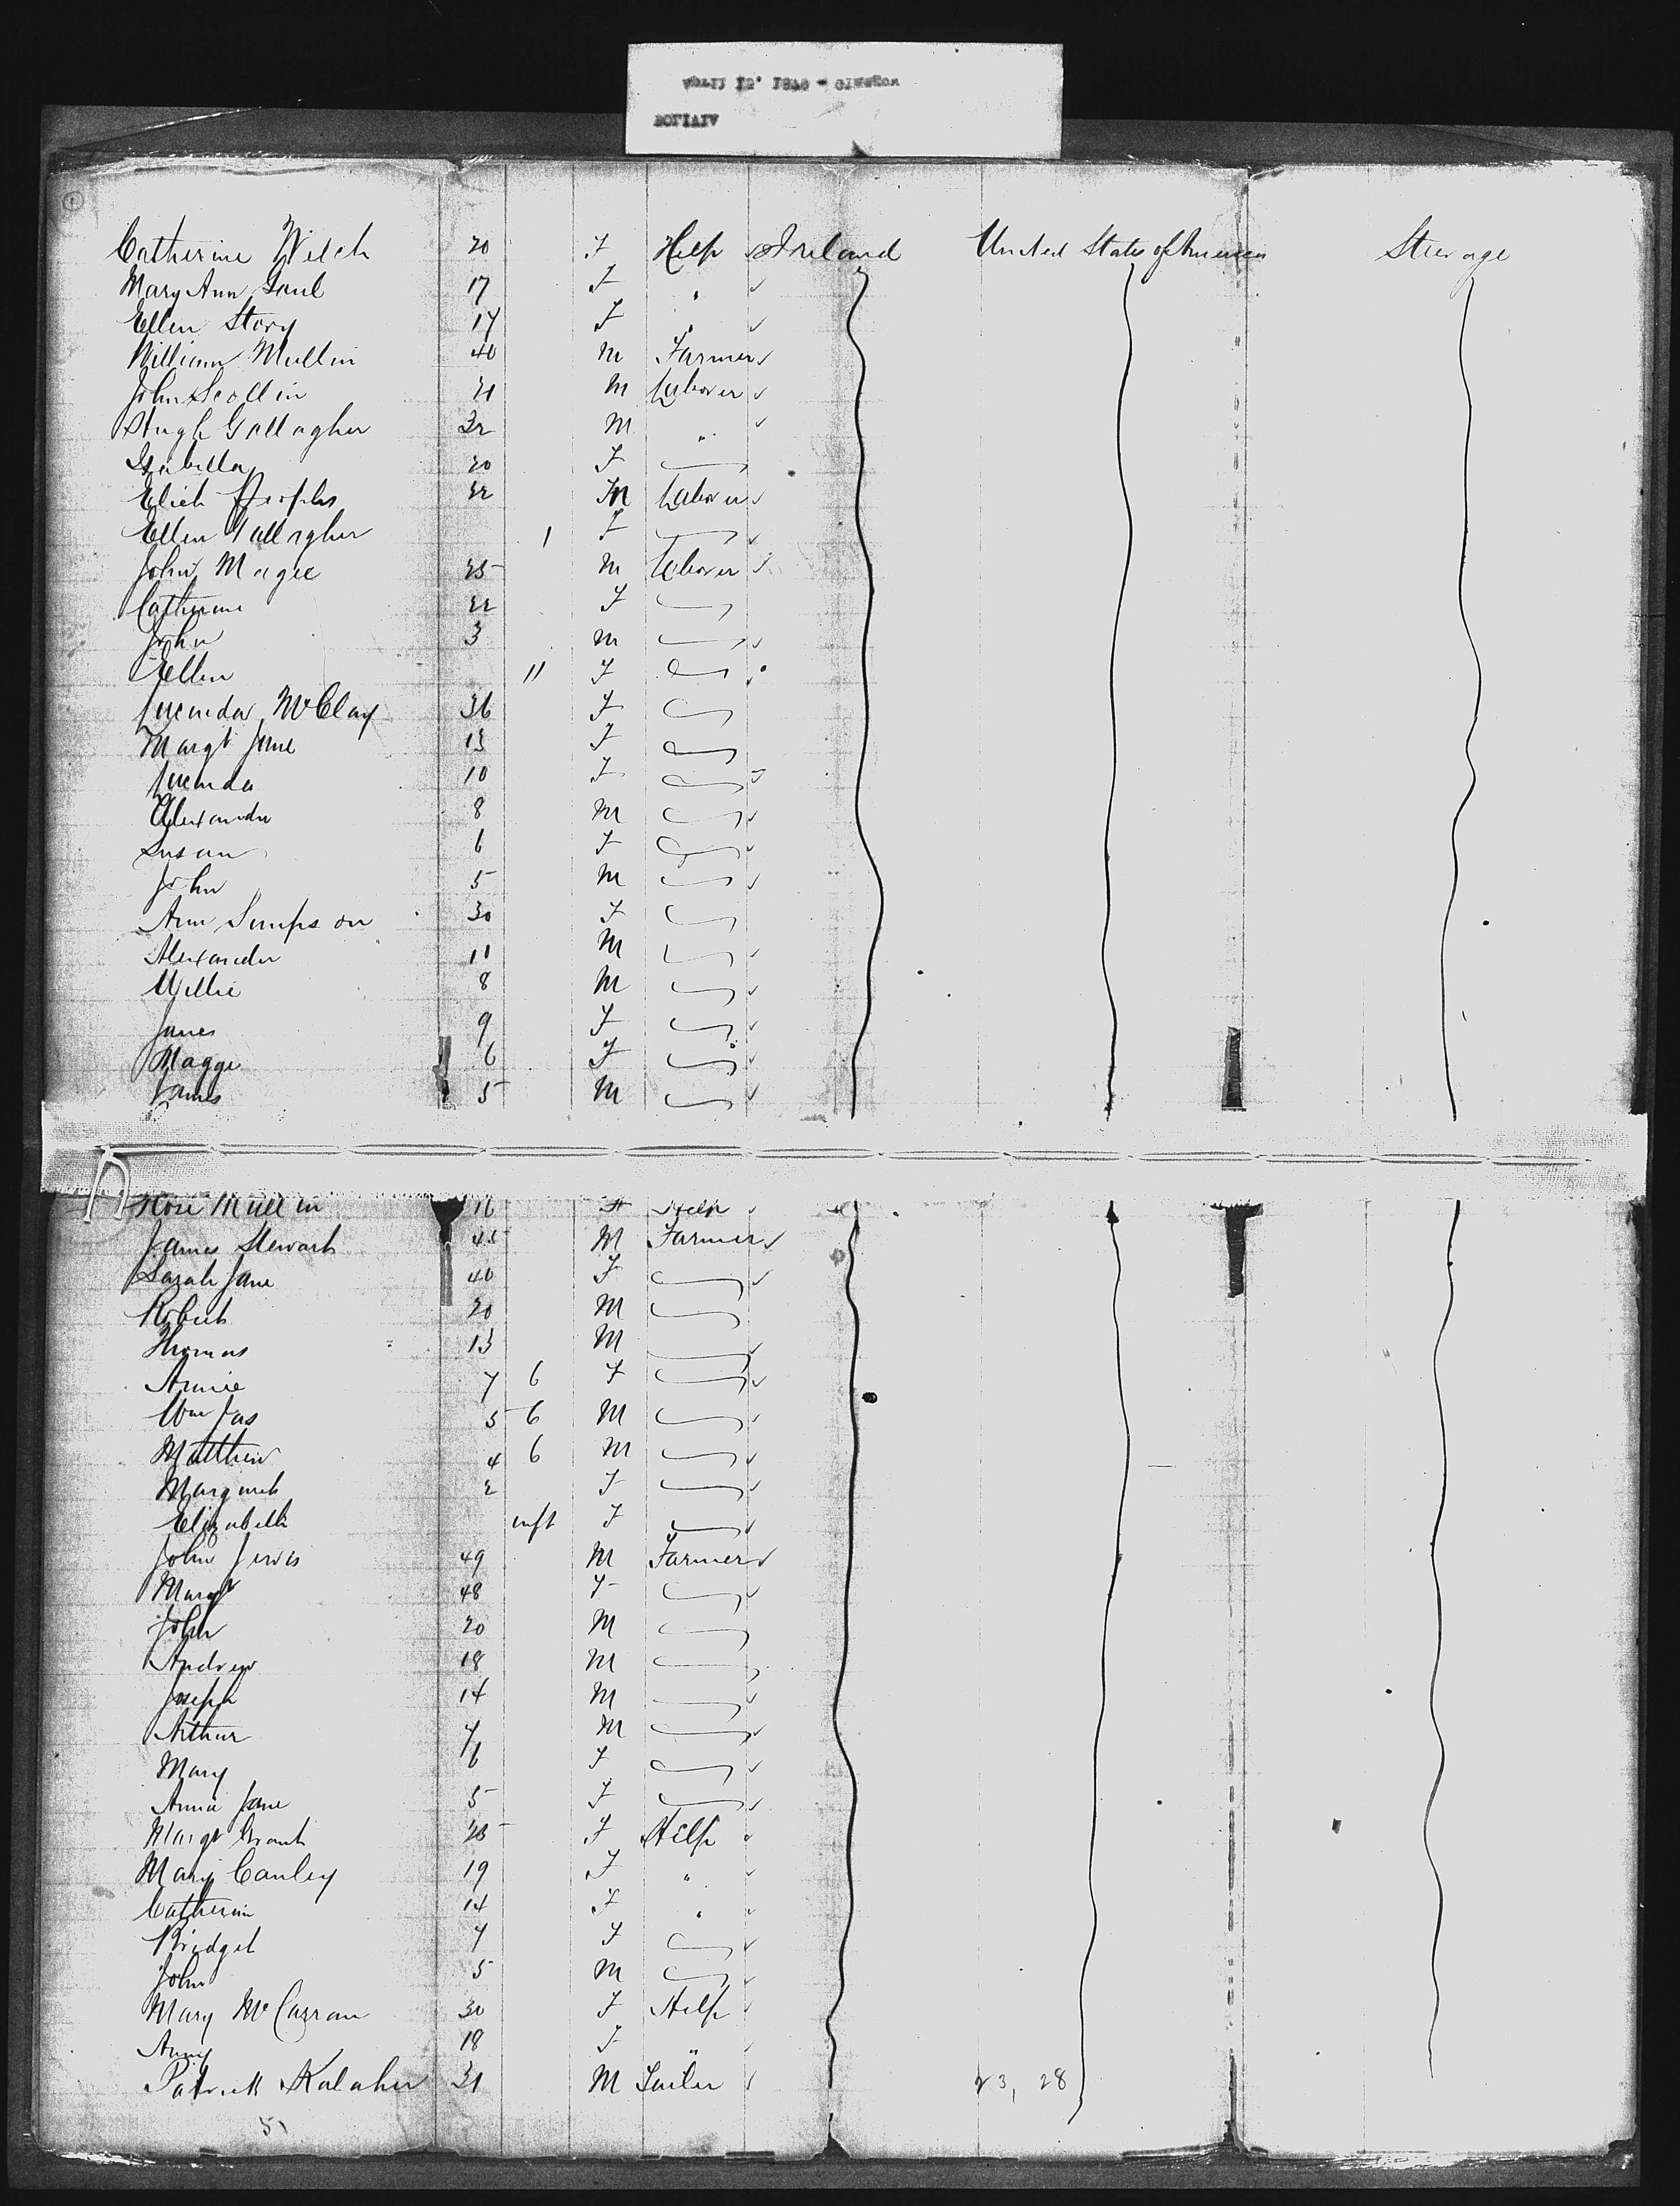 Catherine Welch 20 F Help Ireland United States of America Steerage
Mary Ann Gaul 17 F "
Ellen Story 17 F "
William Mullin 40 M Farmer
John Scollin 21 M Laborer
Hugh Gallagher 32 M "
Isabella 20 F
Elich Peoples 22 M Laborer
Ellen Gallagher 1 F
John Magee 25 M Laborer
Catherine 22 F
John 3 M
Ellen 11 F
Lucinda McClay 36 F
Margt Jane 13 F
Lucinda 10 F
Alexander 8 M
Susan 6 F
John 5 M
Ann Simpson 30 F
Alexander 11 M
Willie 8 M
Janes 9 F
Maggie 6 F
James 5 M
Rose Mullin 16 F Help
James Stewart 45 M Farmer
Sarah Jane 40 F
Robert 20 M
Thomas 13 M
Annie 7 6 F
Wm Jas 5 6 M
Matthew 4 6 M
Margaret 2 F
Elizabeth inft F
John Jervis 49 M Farmer
Margt 48 F
John 20 M
Andrew 18 M
Joseph 14 M
Arthur 7 M
Mary 6 F
Annie Jane 5 F
Margt Grant 25 F Help
Mary Canley 19 F "
Catherine 14 F "
Bridget 7 F
John 5 M
Mary McCarran 30 F Help
Anny 18 F "
Patrick Kalaher 31 M Tailor 23, 28
51